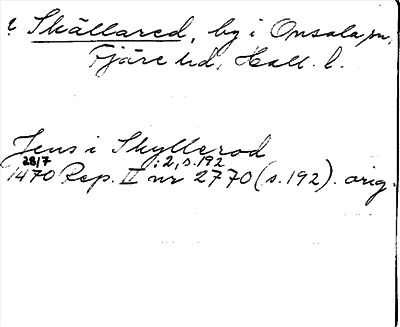 ? Skällared, by i Onsala sn,
Fjäre hd, Hall. l.
Jens i Skyllerod
28/7 :2, s.192
1470 Rep. II nr 2770 (s.192). orig.